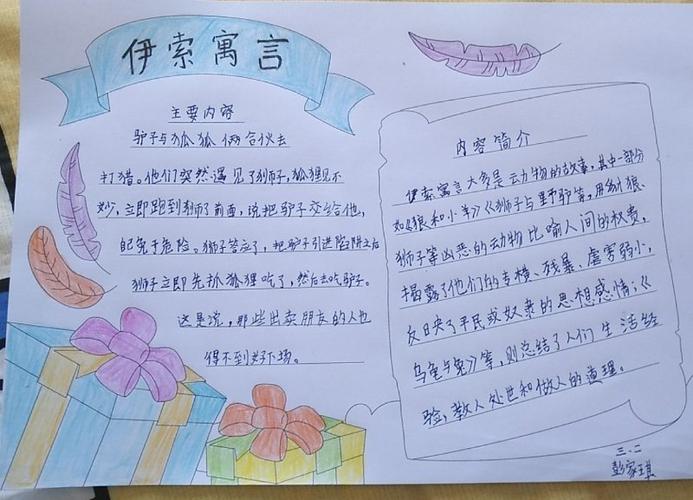 伊索寓言
主要内容
驴子与狐狸俩合伙去
打猎。他们突然遇见了狮子，狐狸见不
妙，立即跑到狮子前面，说把驴子交给他，
自己免于危险。狮子答应了，把驴子引进陷阱之后
狮子立即先抓狐狸吃了，然后去吃驴子。
这是说，那些出卖朋友的人也
得不到好下场。
内容简介
伊索寓言大多是动物的故事，其中一部分
如《狼和小羊》《狮子与野驴等，用豺狼、
狮子等凶恶的动物比喻人间的权贵，
揭露了他们的专横、残暴、虐害弱小，
反映了平民或奴隶的思想感情；《
乌龟与兔》等，则总结了人们生活经
验，教人处世和做人的道理。
三.二
彭家琪